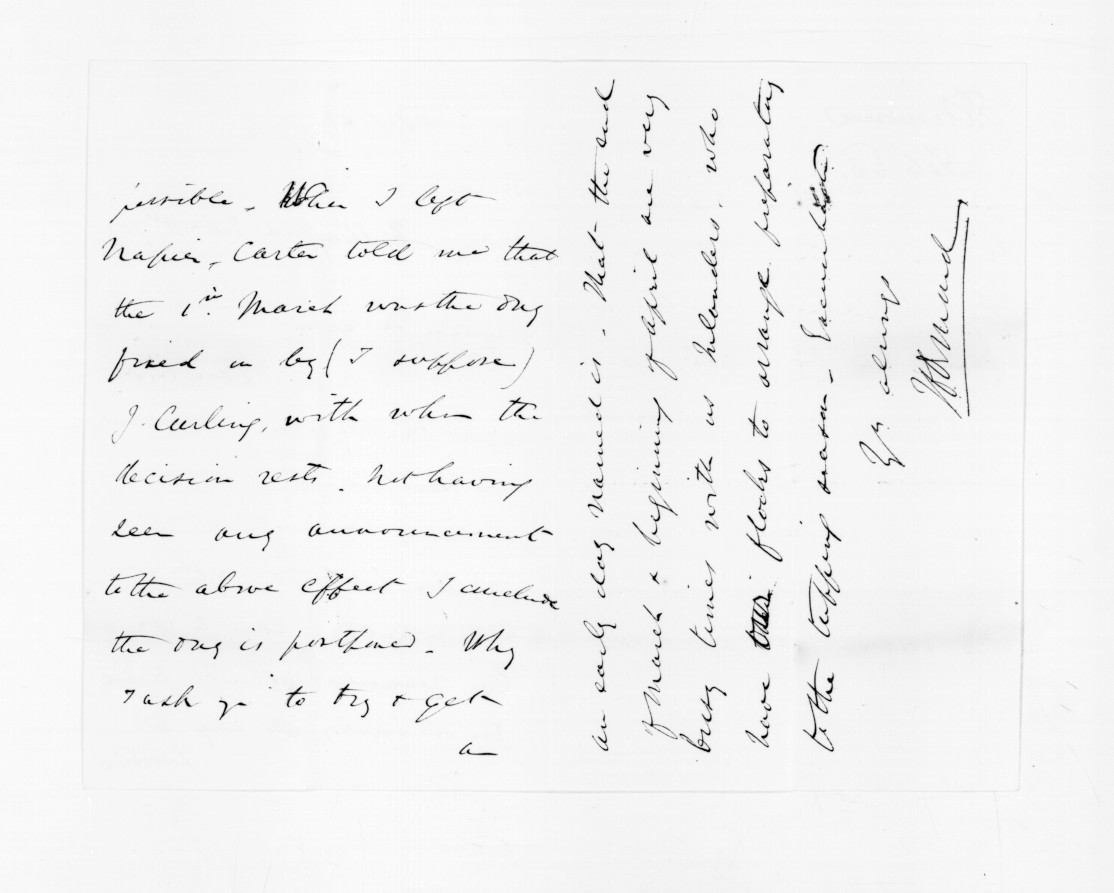 possible. When I left
Napier, Carter told me that
the 1st. March was the day
fixed on by (I suppose)
J. Curling, with whom the
decision rests. Not having
seen any announcement
to the above effect I conclude
the day is postponed. Why
I ask yo to try & get
a
an early day named is. That the end
of March & beginning of April are very
busy times with us Inlanders, who
have flocks to arrange preparatory
to the tupping season.
Yrs always